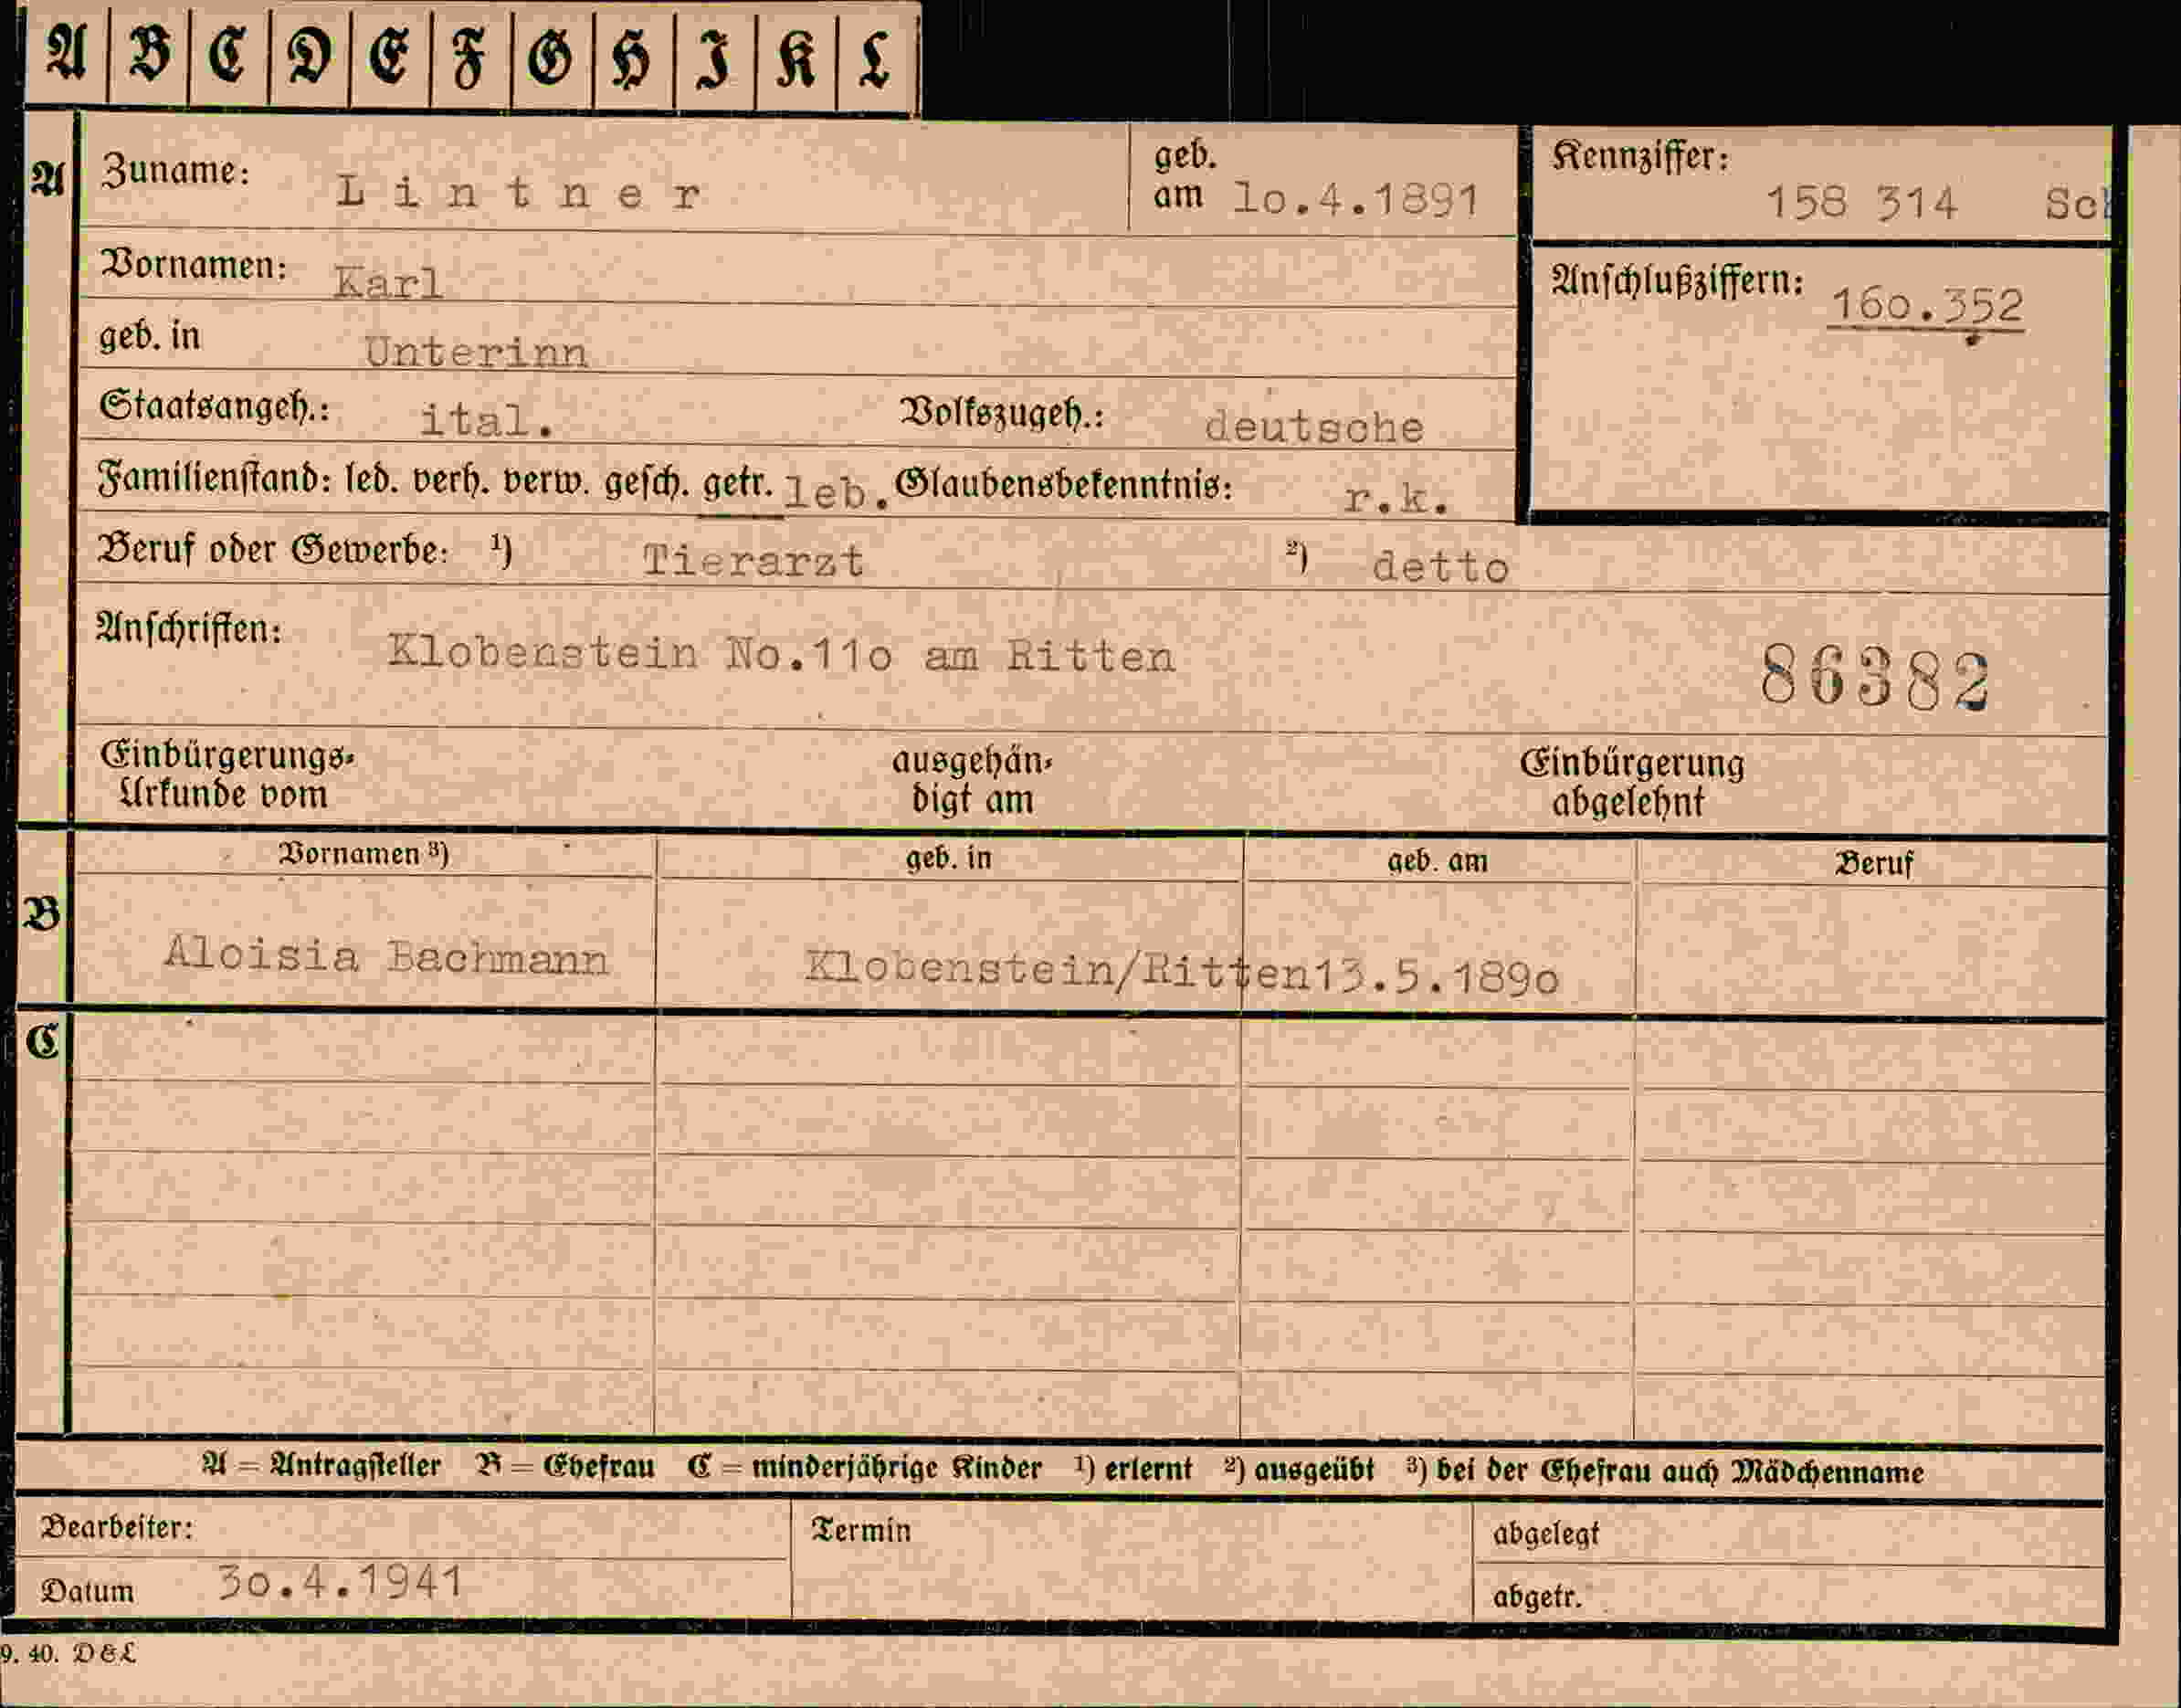 A B C D E F G H I K L
A Zuname: Lintner geb. am 1o.4.1891 Kennziffer: 158 314
Vornamen: Karl Anschlußziffern: 16o.352
geb. in Unterinn
Staatsangeh.: ital. Volkszugeh.: deutsche
Familienstand: led. verh. verw. gesch. getr. leb. Glaubensbekenntnis: r.k.
Beruf oder Gewerbe: 1) Tierarzt 2) detto
Anschriften: Klobenstein No.11o am Ritten 86382
Einbürgerungs-Urkunde vom ausgehändigt am Einbürgerung abgelehnt
Vornamen 3) geb. in geb. am Beruf
B Aloisia Bachmann Klobenstein/Ritten 13.5.189o
C
A = Antragsteller B = Ehefrau C = minderjährige Kinder 1) erlernt 2) ausgeübt 3) bei der Ehefrau auch Mädchenname
Bearbeiter: Termin abgelegt
Datum 3o.4.1941 abgetr.
9. 40. D & L